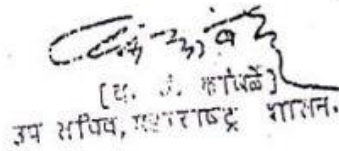 [द. उ. कांबळे]
उप सचिव, महाराष्ट्र शासन.